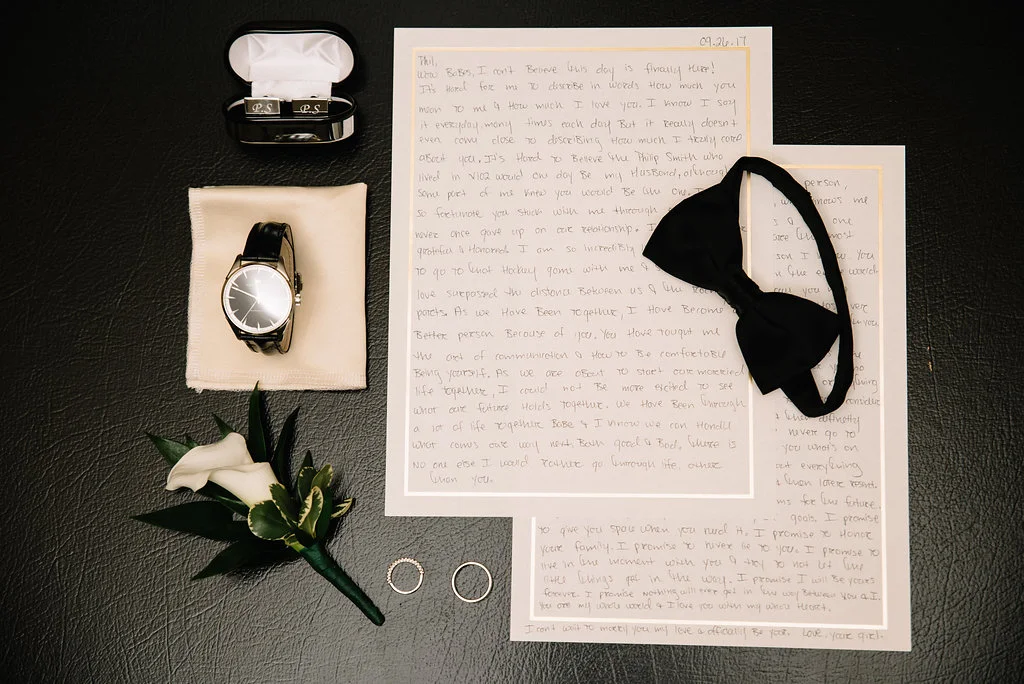 P.S
P.S
09.26.17
Phil,
Wow Babes, I can't Believe this day is finally Here!
It's Hard for me to discribe in words How much you
mean to me & How much I love you. I know I say
it everyday, many times each day But it really doesn't
even come close to discribing How much I truly care
about you. It's Hard to Believe the Philip Smith who
lived in would one day Be my Husband, although
some part of me knew you would Be the one. I
so fortunate you stuck with me through
never once gave up on our relationship. I
grateful & Honored I am so incredibly
to go to that Hockey game with me &
love surpassed the distance Between us & the
parts. As we Have Been together, I Have Become a
Better person Because of you. You Have taught me
the art of communication & How to Be comfortable
Being yourself. As we are about to start our married
life together, I could not Be more excited to see
what our future Holds together. We Have Been through
a lot of life together Babe & I know we can Handle
what comes our way next. Both good & Bad, there is
no one else I would rather go through life, other
than you.
person,
knows me
one
most
son I know. You
the world.
you
you.
everything
consider
definetly
never go to
you what's on
everything
for the future.
goals. I promise
to give you space when you need it. I promise to Honor
your family. I promise to never lie to you. I promise to
live in the moment with you & try to not let the
little things get in the way. I promise I will Be yours
forever. I promise nothing will ever get in the way Between you & I.
You are my whole world & I love you with my whole Heart.
I can't wait to marry you my love & officially Be yours. Love, your girl.